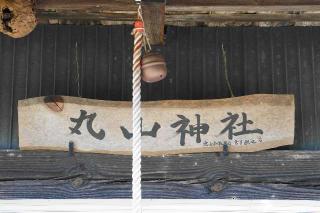 丸山神社